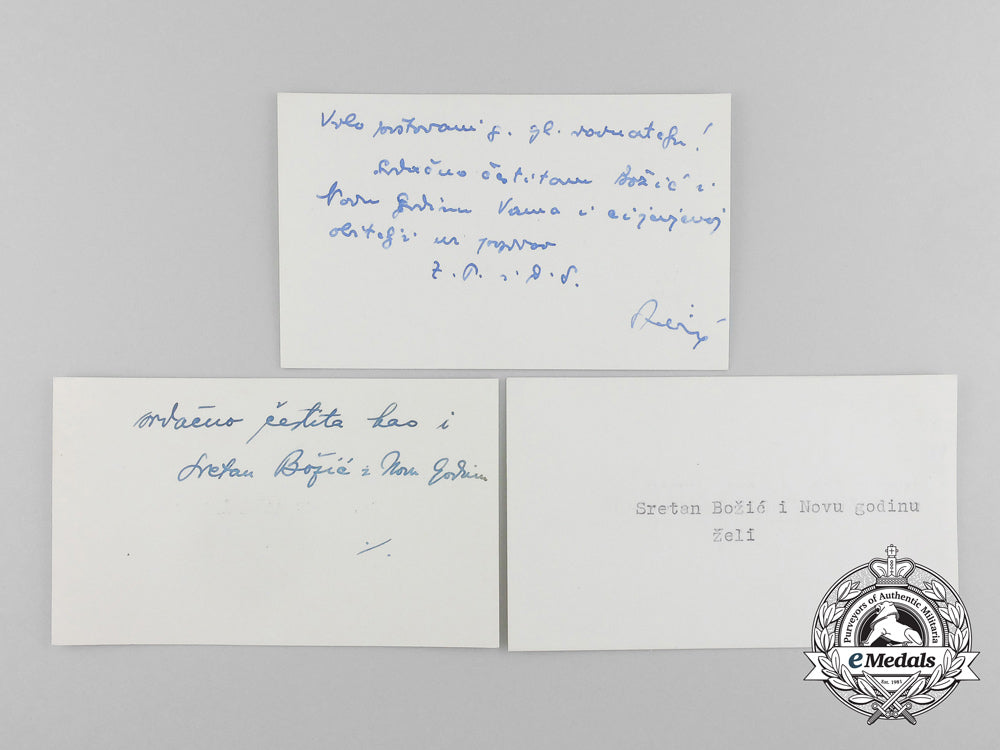 Vrlo poštovani g. gl. ravnatelju!
Srdačno čestitam Božić i
Novu Godinu Vama i cijenjenoj
obitelji uz pozdrav
Z. P. i D. S.
srdačno čestita kao i
Sretan Božić i Novu Godinu
·/.
Sretan Božić i Novu godinu
želi
Purveyors of Authentic Militaria
eMedals
Est. 1981